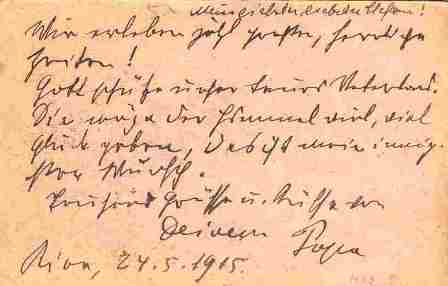 Mein lieber, lieber Stefan!
Wir erleben jetzt große, herrliche
Zeiten!
Gott schütze unser teures Vaterland.
Dir möge der Himmel viel, viel
Glück geben, das ist mein innig-
ster Wunsch.
Tausend Grüße u. Küsse von
Deinem Papa
Riva, 24.5.1915.